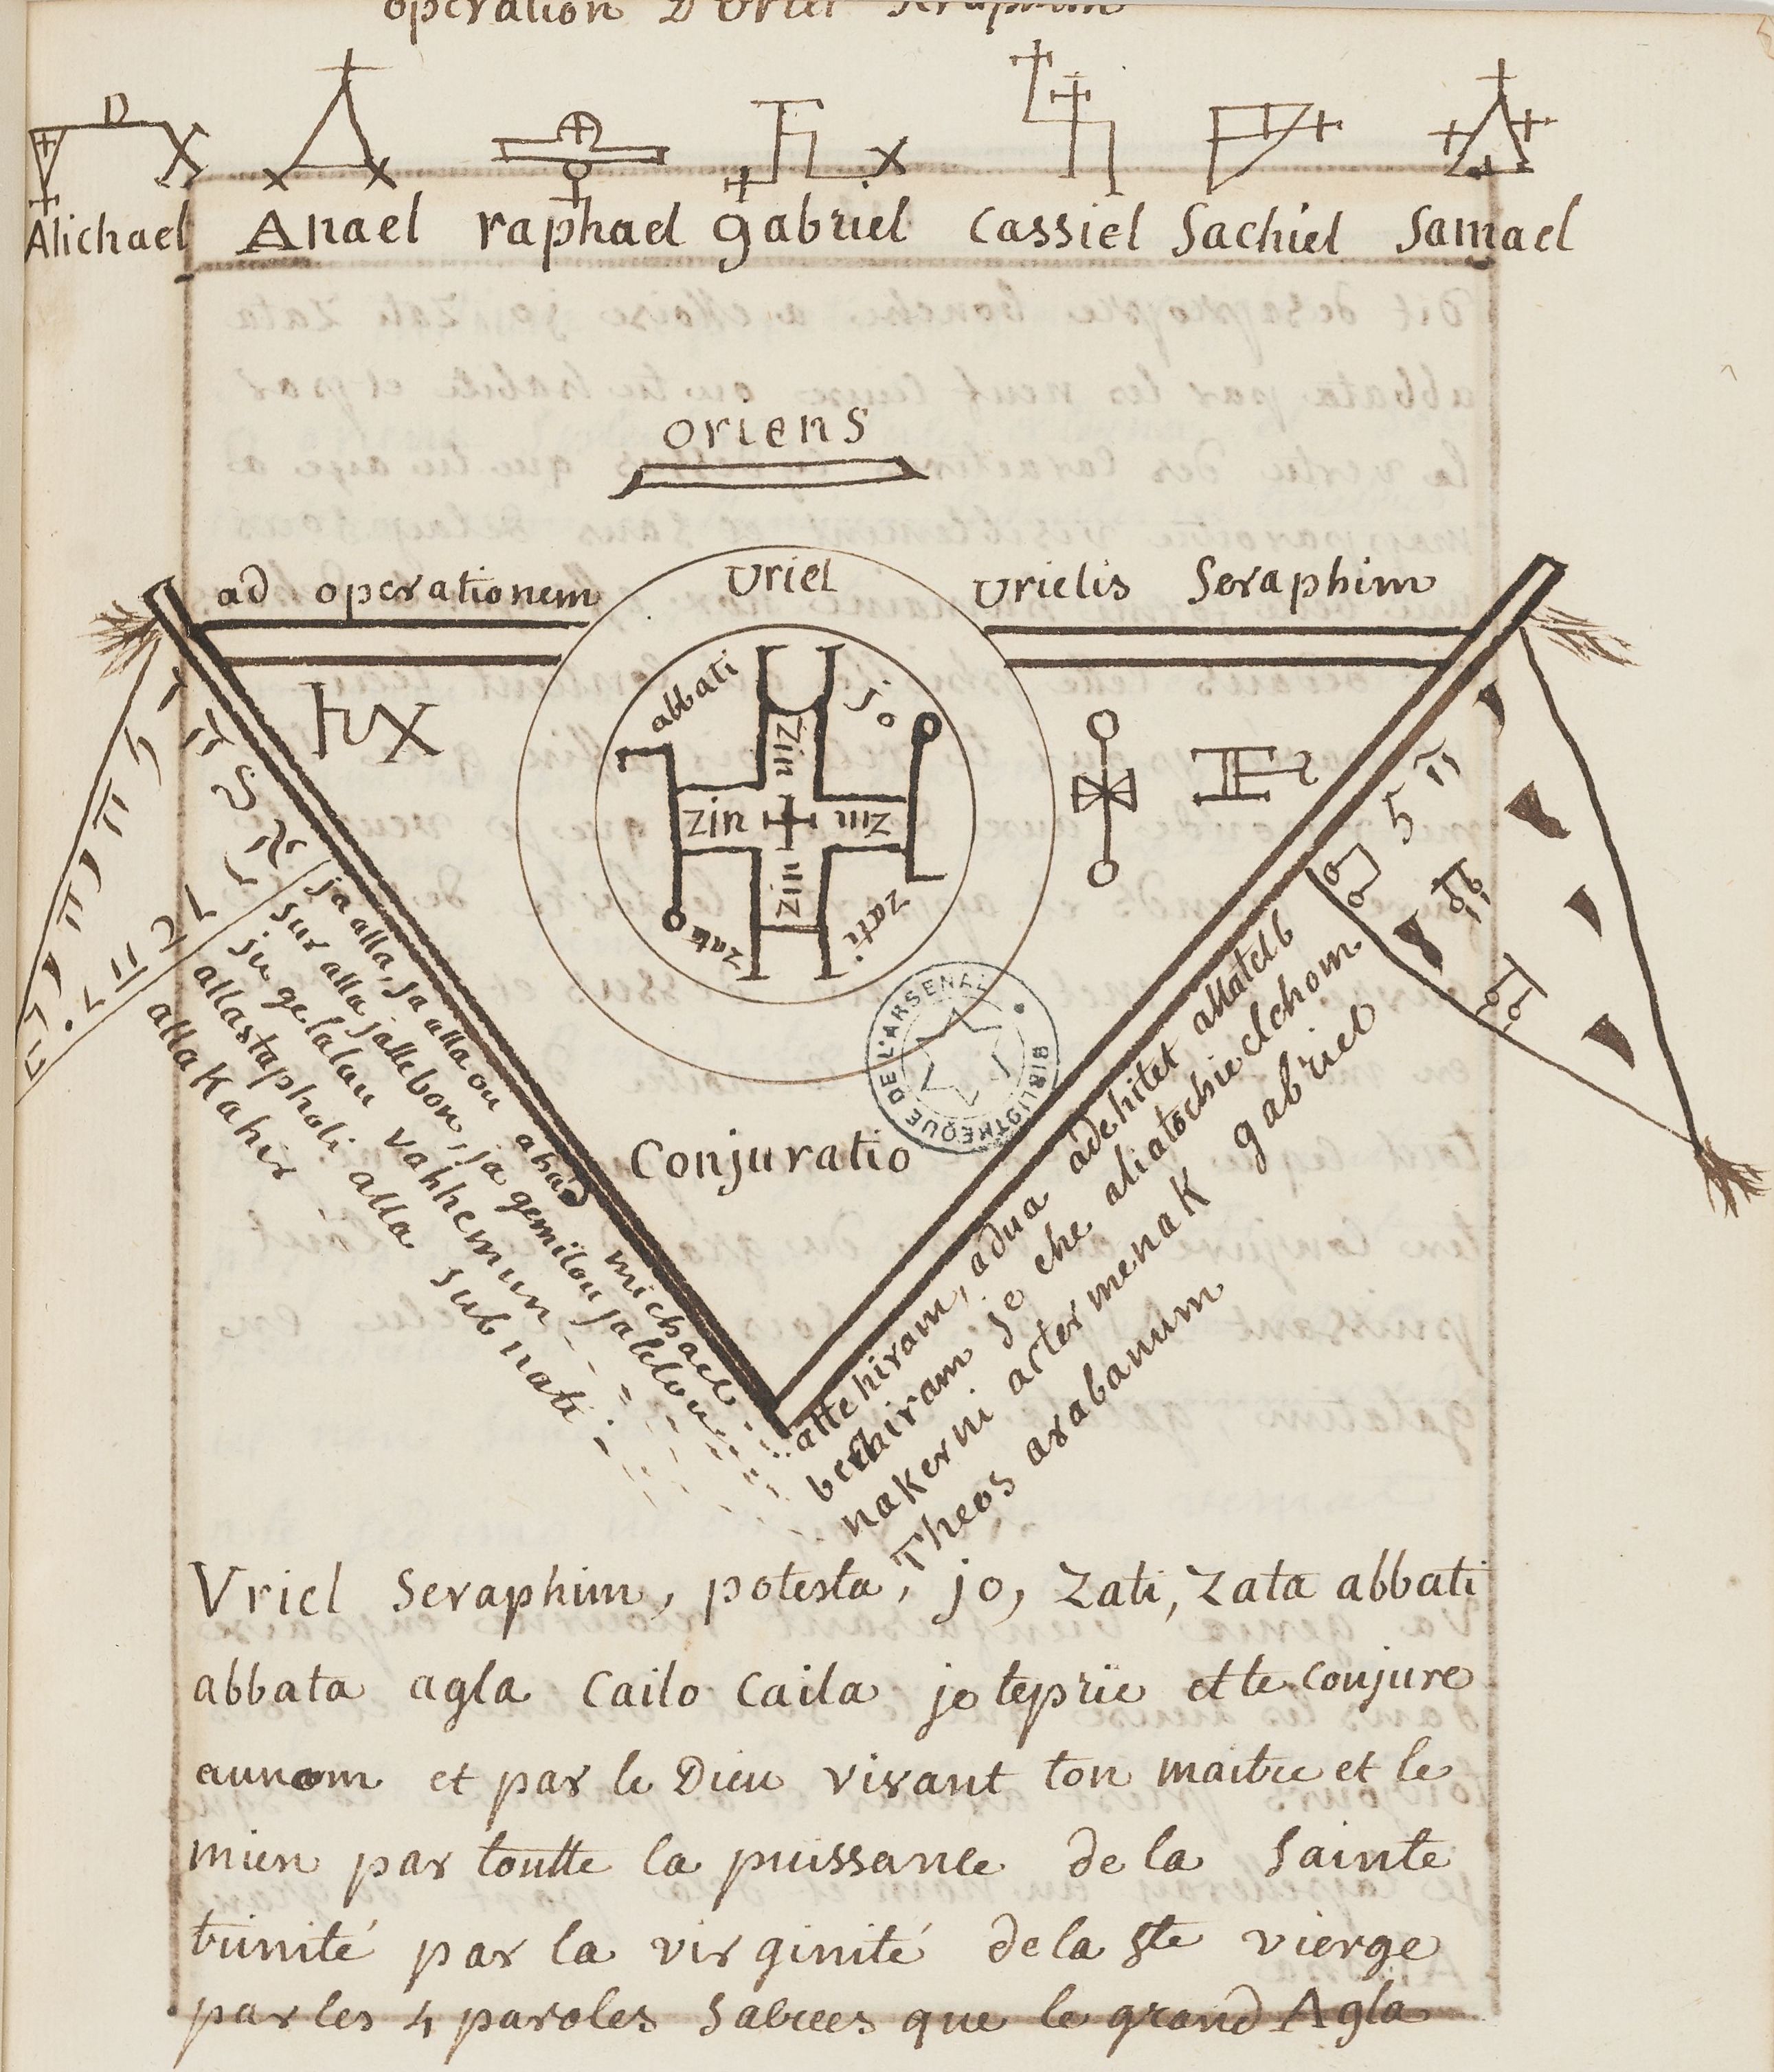 operation D'Uriel Seraphim
Michael Anael raphael gabriel Cassiel Sachiel Samael
oriens
ad operationem Uriel Urielis Seraphim
abbati jo
zin
zin zin
zin
zata zati
BIBLIOTHEQUE DE L'ARSENAL
ja alla, ja alla ou abad michael
sur alla jallebon, ja gemilou jalelou
ju gelalau vahhemun
allastapholi alla subnati
alla Kahir
Conjuratio
attehiram, adua adehitet allatelb
berhiram je che aliatochieelchom
nakerni acter menak gabriel
Theos arabanum
Vriel Seraphim, potesta, jo, Zati, Zata abbati
abbata agla Cailo Caila je teprie et te Conjure
aunom et par le Dieu vivant ton maitre et le
mien par toutte la puissance de la Sainte
trinité par la virginité dela Ste vierge
par les 4 paroles Sacrees que le grand Agla